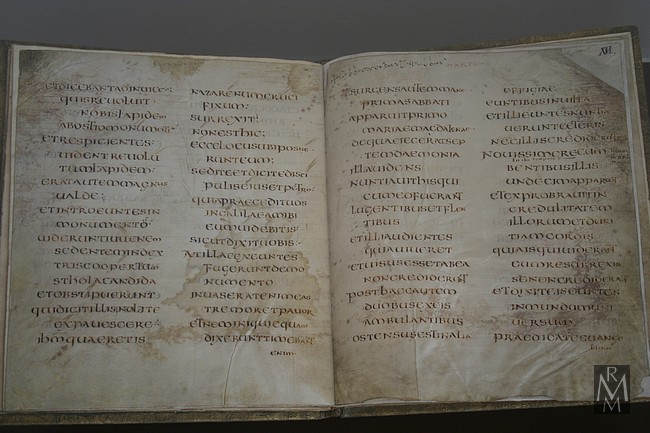 ETDICEBANTADINUICE
QUISREUOLUIT
NOBISLAPIDEM
ABOSTIOMONUMENTI
ETRESPICIENTES
UIDENTREUOLU
TUMLAPIDEM
ERATAUTEMMAGNUS
UALDE·
ETINTROEUNTESIN
MONUMENTO
UIDERUNTIUUENEM
SEDENTEMINDEX
TRISCOOPERTUM
STHOLACANDIDA
ETOBSTIPUERUNT
QUIDICITILLISNOLITE
EXPAUESCERE
IHMQUAERETIS
NAZARENUMCRUCI
FIXUM·
SURREXIT·
NONESTHIC·
ECCELOCUSUBIPOSUE
RUNTEUM·
SEDITEETDICITEDISCI
PULISEIUSETPETRO
QUIAPRAECEDITUOS
INGALILAEAMIBI
EUMUIDEBITIS
SICUTDIXITUOBIS·
ATILLAEEXEUNTES
FUGERUNTDEMO
NUMENTO
INUASERATENIMEAS
TREMORETPAUOR
ETNEMINIQUICQUAM
DIXERUNTTIMEBANT
ENIM·
XII.
SURGENSAUTEMMANE
PRIMASABBATI
APPARUITPRIMO
MARIAEMAGDALENAE
DEQUAEIECERATSEP
TEMDAEMONIA
ILLAUADENS
NUNTIAUITHISQUI
CUMEOFUERANT
LUGENTIBUSETFLEN
TIBUS
ETILLIAUDIENTES
QUIAUIUERET
ETUISUSESSETABEA
NONCREDIDERUNT
POSTHAECAUTEM
DUOBUSEXEIS
AMBULANTIBUS
OSTENSUSESTINALIA
EFFIGIAE
EUNTIBUSINUILLA
ETILLIEUNTESNUNTIA
UERUNTCETERIS
NECILLISCREDIDERUNT
NOUISSIMERECUM
BENTIBUSILLIS
UNDECIMAPPARUIT
ETEXPROBRAUITIN
CREDULITATEM
ILLORUMETDURI
TIAMCORDIS
QUIAISQUIUIDERANT
EUMRESURREXIS
SENONCREDIDERANT
ETDIXITEISEUNTES
INMUNDUMUNI
UERSUM
PRAEDICATEEUANGE
RMM